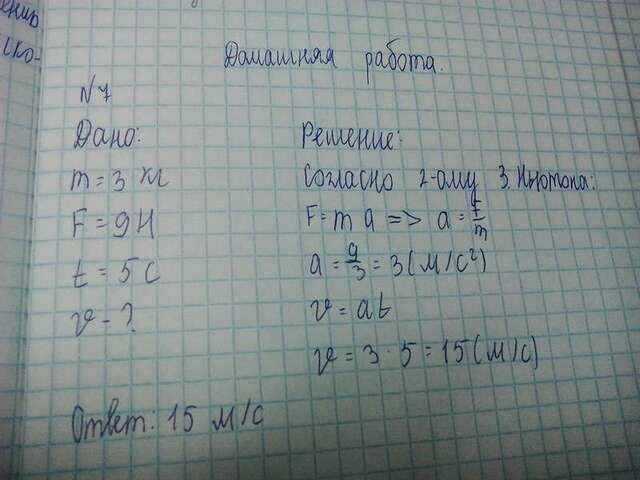 ению
ско-
Домашняя работа.
№7
Дано:
m = 3 кг
F = 9Н
t = 5 с
v - ?
Решение:
Согласно 2-ому З. Ньютона:
F = m a => a = F/m
a = 9/3 = 3 (м/с²)
v = at
v = 3 · 5 = 15 (м/с)
Ответ: 15 м/с